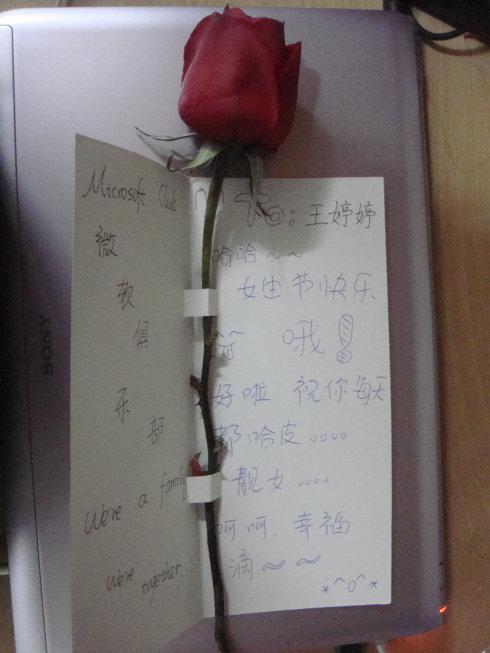 Microsoft Club
微
软
俱
乐
部
We're a family
We're together
To:王婷婷
哈哈~~
女生节快乐
哦!
好啦.祝你每天
都哈皮。。。。
靓女。。。。
呵呵.幸福
滴~~
*^o^*
SONY